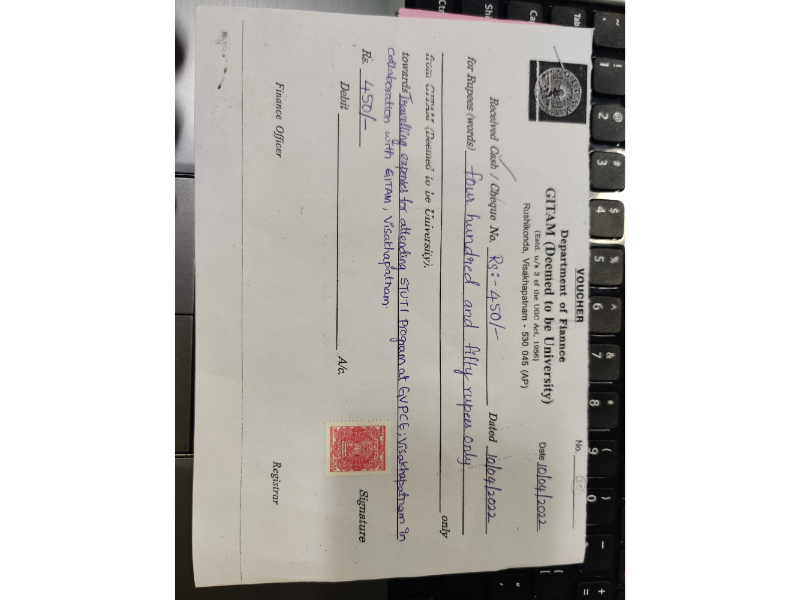 VOUCHER
No.
Department of Fiannce
GITAM (Deemed to be University)
(Estd. u/s 3 of the UGC Act, 1956)
Rushikonda, Visakhapatnam - 530 045 (AP)
Date 10/04/2022
Received Cash / Cheque No. Rs:- 450/- Dated 10/04/2022
for Rupees (words) four hundred and fifty rupees only.
only
from GITAM (Deemed to be University).
towards Travelling expenses for attending STUTI Program at GVPCE, Visakhapatnam In
collaboration with GITAM, Visakhapatnam.
Rs. 450/-
Debit A/c.
Signature
Finance Officer Registrar
Tab
~
! 1
@ 2
# 3
$ 4
% 5
^ 6
& 7
* 8
( 9
) 0
-
+ =